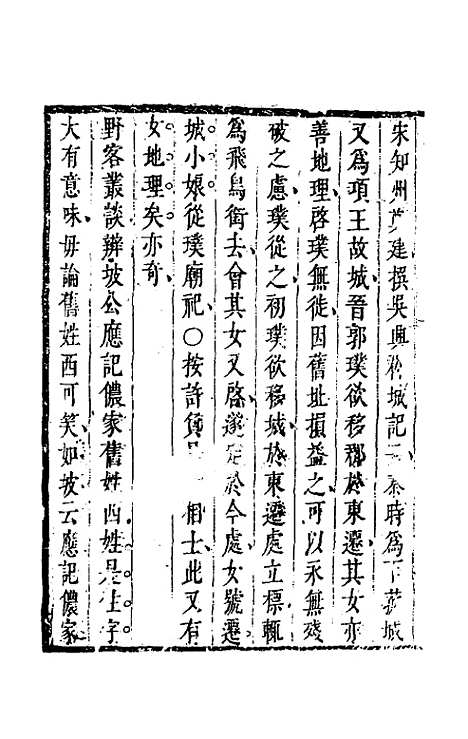 宋知州萁建撰吳興移城記云秦時爲下菰城
又爲項王故城晉郭璞欲移郡於東遷其女亦
善地理啓璞無徙因舊址損益之可以永無殘
破之慮璞從之初璞欲移城於東遷處立標輒
爲飛鳥銜去會其女又啓遂定於今處女號遷
城小娘從璞廟祀○按許負 相士此又有
女地理矣亦奇
野客叢談辨坡公應記儂家舊姓西姓是住字
大有意味毋論舊姓西可笑如坡云應記儂家